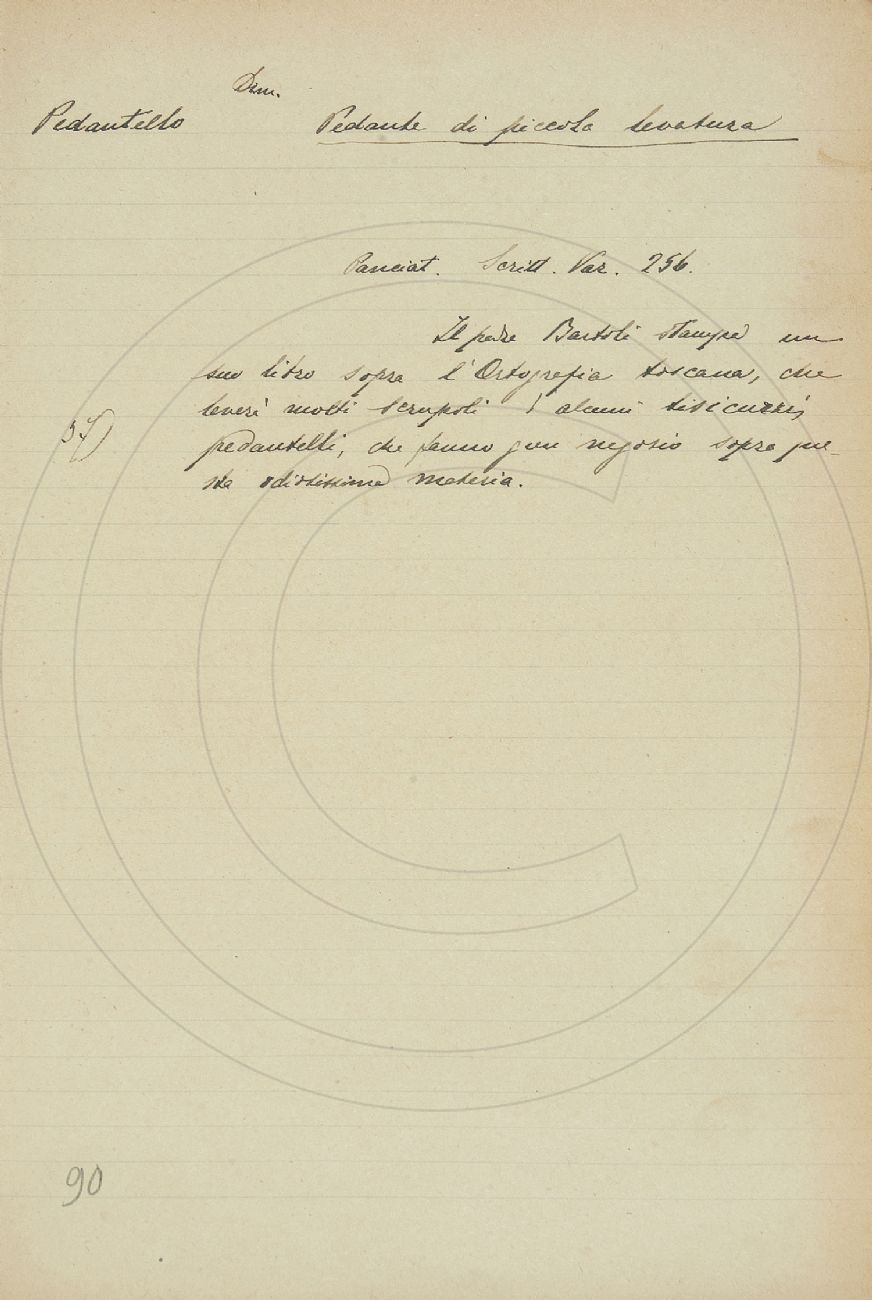 Dim.
Pedantello Pedante di piccola levatura
Panciat. Scritt. Var. 256.
Il padre Bartoli stampò un
suo libro sopra l'Ortografia toscana, che
leverà molti scrupoli a alcuni tisicuzzi,
pedantelli, che fanno gran negozio sopra que-
sta odiosissima materia.
57)
90